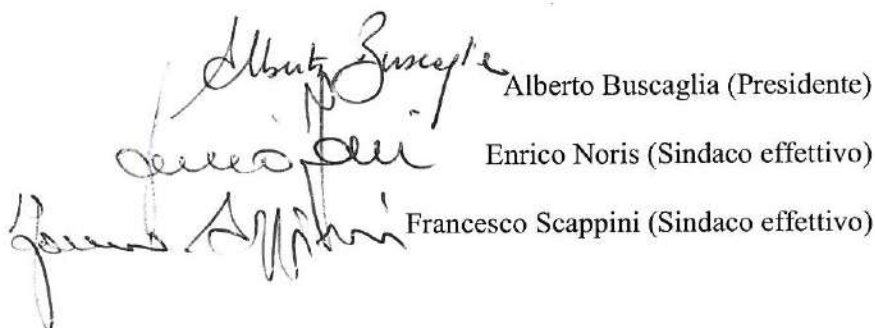 Alberto Buscaglia Alberto Buscaglia (Presidente)
Enrico Noris (Sindaco effettivo)
Francesco Scappini (Sindaco effettivo)